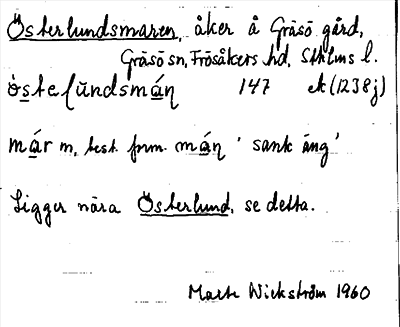 Österlundsmaren, åker å Gräsö gård,
Gräsö sn, Frösåkers hd, Sthlms l.
òstel̨ŭndsmán 147 ek (1238j)
már m, best. form. mán ' sank äng '
Ligger nära Österlund, se detta.
Märta Wickström 1960